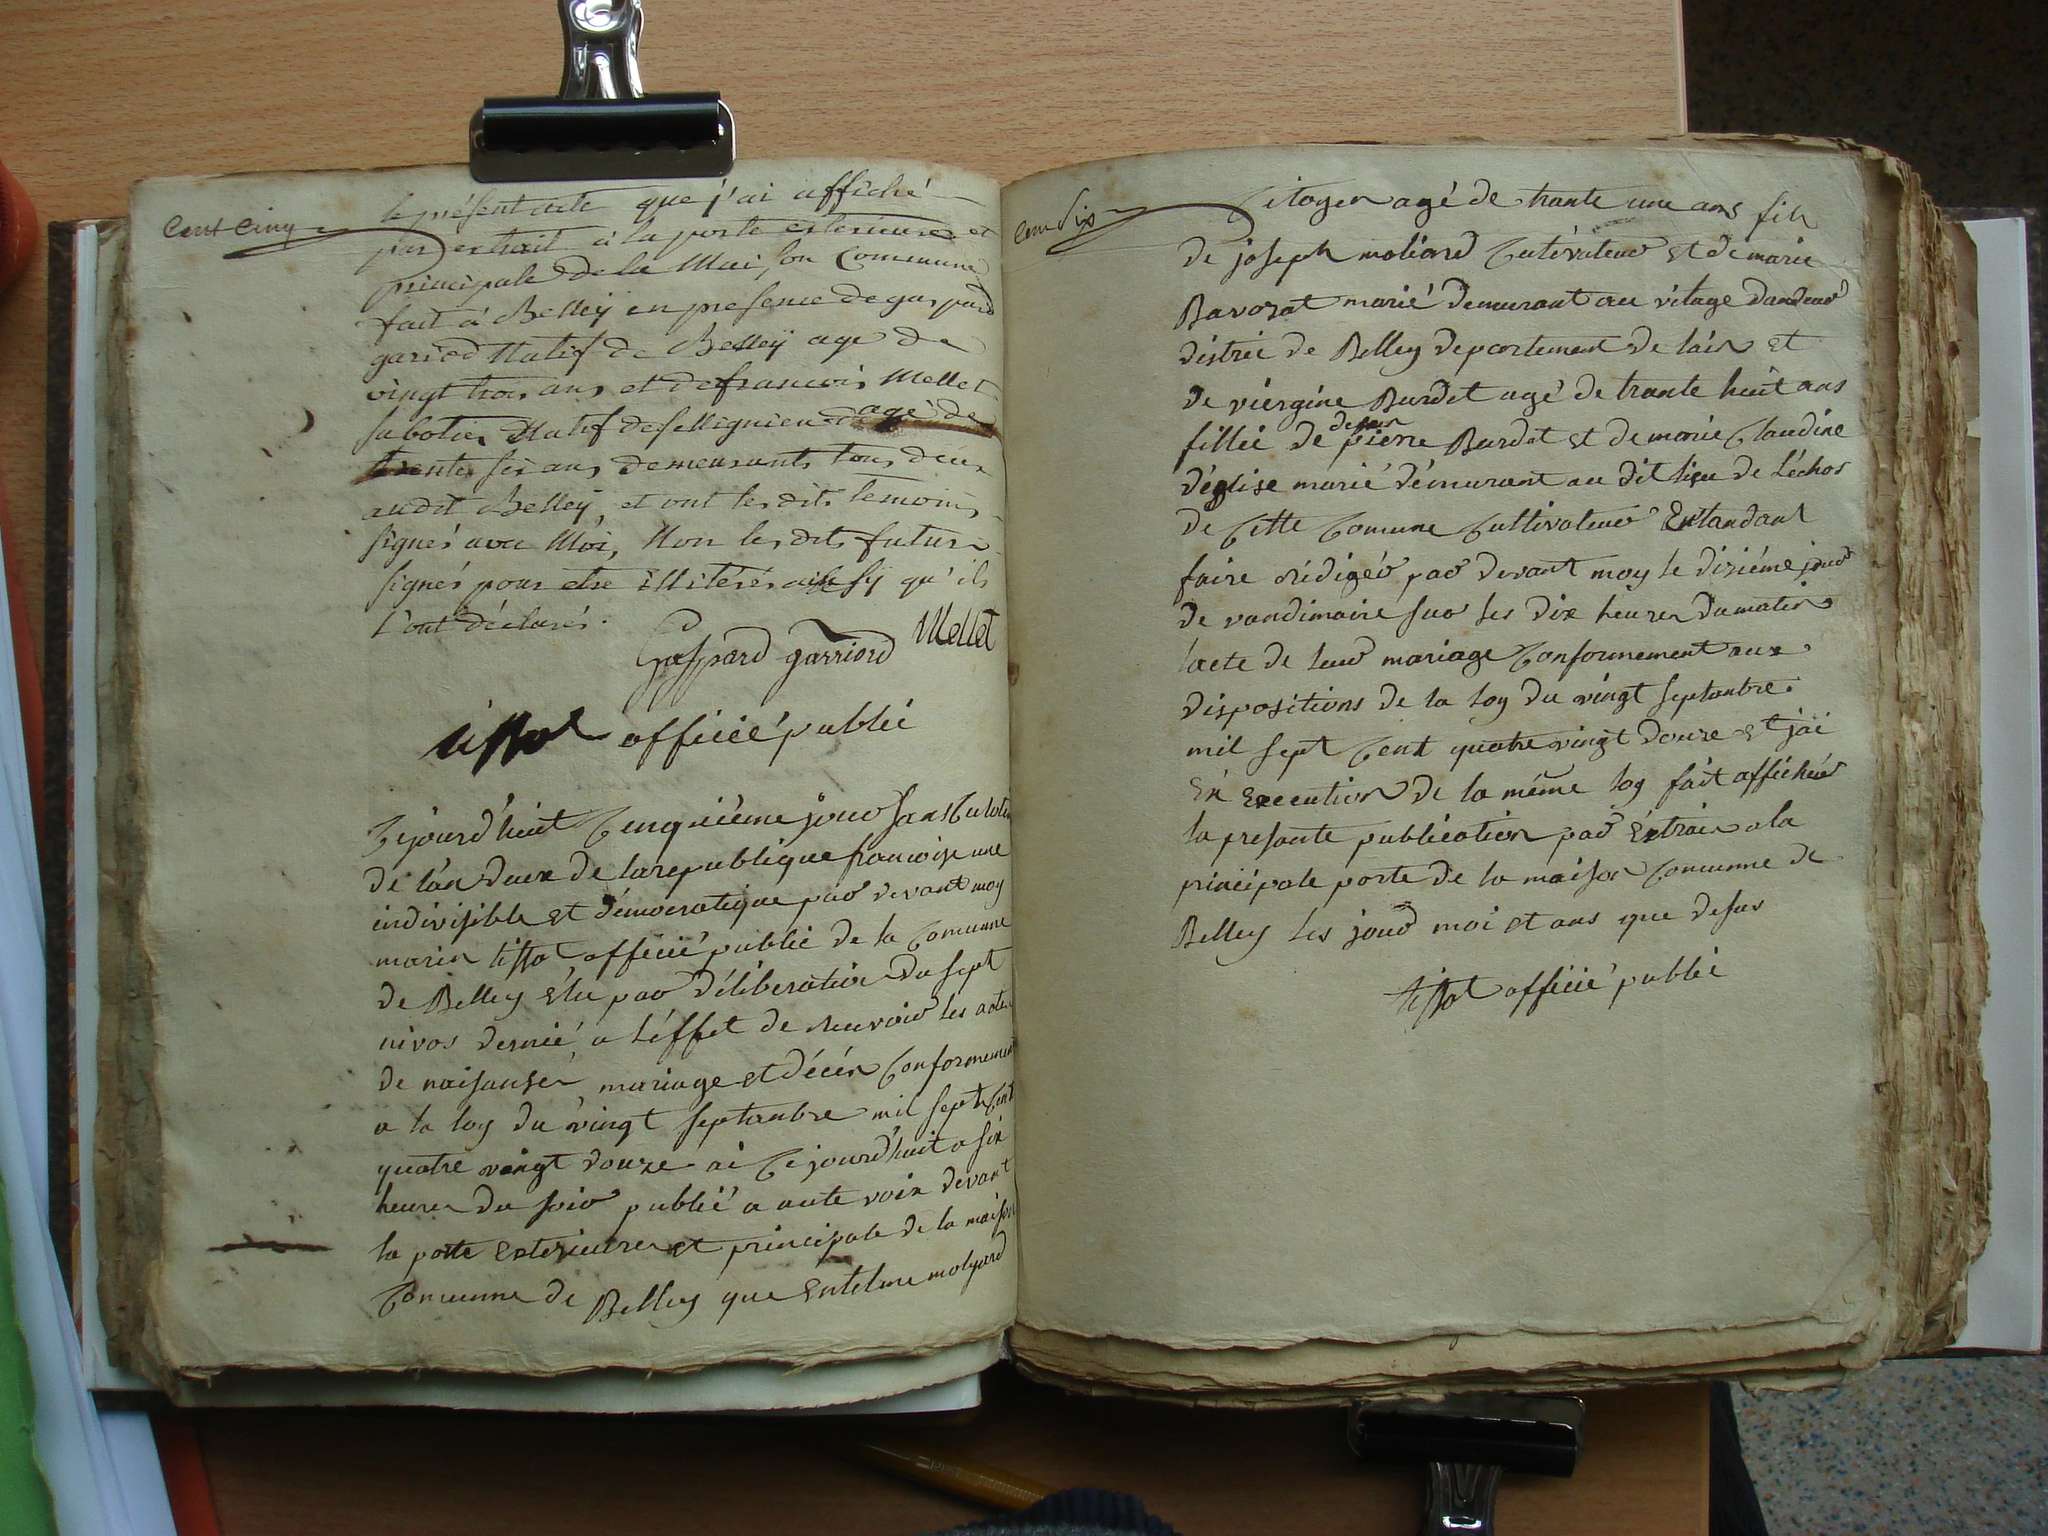 Cent Cinq
le présent acte que j'ai affiché
par extrait à la porte exterieure et
principale de la Maison Commune
fait à Belleÿ en presence de gaspard
garriod Natif de Belleÿ age de
vingt trois ans et de francois Mellet
sabotier Natif de sellignieu agé de
trente six ans demeurants tous deux
audit Belleÿ, et ont les dits temoins
signés avec Moi, Non les dits futurs
signés pour etre illitérés ainsy qu'ils
l'ont déclarés.
Gaspard garriord Mellet
tissot officié publié
Cejourd'huit Cinquiéme jour sans Culotte
de l'an deux de la republique francoise une
indivisible et démocratique par devant moy
marin tissot officié publié de la Comunne
de Belley élu par déliberation du sept
nivos dernié, a l'éffet de reuvoir les actes
de naisanse, mariage et décés Conformement
a la loy du vingt septanbre mil sept Cent
quatre vingt douze ai Cejourd'huit a six
heures du soir publié a aute voix devant
la porte exterieure et principale de la maison
Comunne de Belley que entelme molyard
Cent six
Citoyen agé de trante une ans fils
de joseph moliard Cultévateur et de marie
Bavozat marié demurant au vilage dandeur
déstric de Belley departement de l'ain et
de viergine Burdet agé de trante huit ans
fillié de defun pierre Burdet et de marie Claudine
d'églize marié démurant au dit lieu de Léchos
de Cette Comune Cultivateur Entandant
faire rédigér par devant moy le diziéme jour
de vandimaire sur les dix heures du matin
lacte de leur mariage Conformement aux
dispositions de la loy du vingt septanbre
mil sept Cent quatre vingt douze et jai
én execution de la méme loy fait affichér
la presante publication par éxtrais a la
principale porte de la maison Comunne de
Belley les jour moi et ans que desus
tissot officié publié